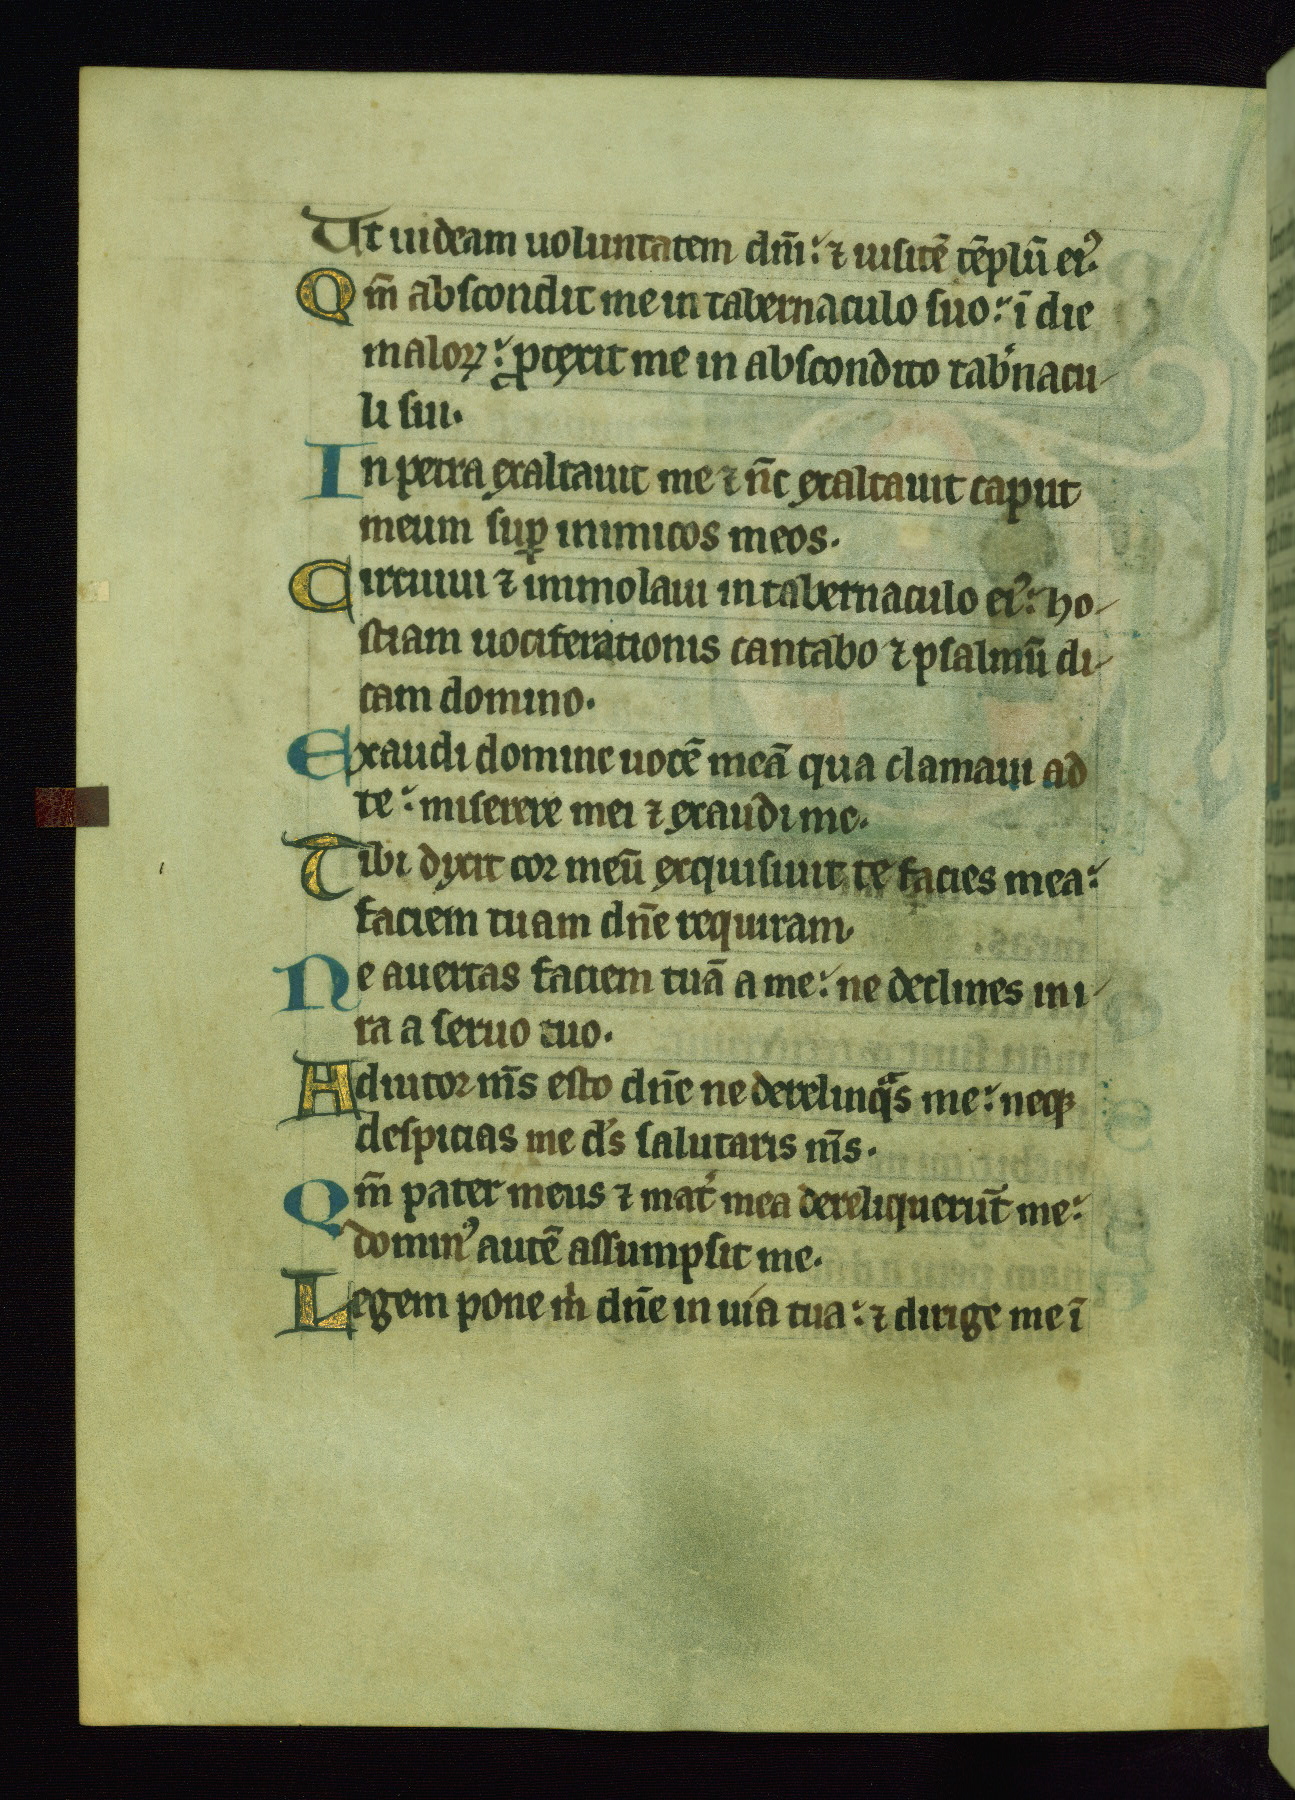 Ut uideam uoluntatem dm̄i: ⁊ uisitē tēplū ei⁹.
Qm̄ abscondit me in tabernaculo suo: ī die
maloꝝ: ꝓtexit me in abscondito tab̓nacu-
li sui.
In petra exaltauit me ⁊ n̄c exaltauit caput
meum suꝑ inimicos meos.
Circuiui ⁊ immolaui in tabernaculo ei⁹: ho-
stiam uociferationis cantabo ⁊ psalmū di-
cam domino.
Exaudi domine uocē meā qua clamaui ad
te: miserere mei ⁊ exaudi me.
Tibi dixit cor meū exquisiuit te facies mea:
faciem tuam dn̄e requiram.
Ne auertas faciem tuā a me: ne declines in i-
ra a seruo tuo.
Adiutor m̄s esto dn̄e ne derelinqᵃs me: neqꝫ
despicias me d̓s salutaris m̄s.
Qm̄ pater meus ⁊ mat̓ mea dereliquerūt me:
domin⁹ autē assumpsit me.
Legem pone m̓ dn̄e in uia tua: ⁊ dirige me ī